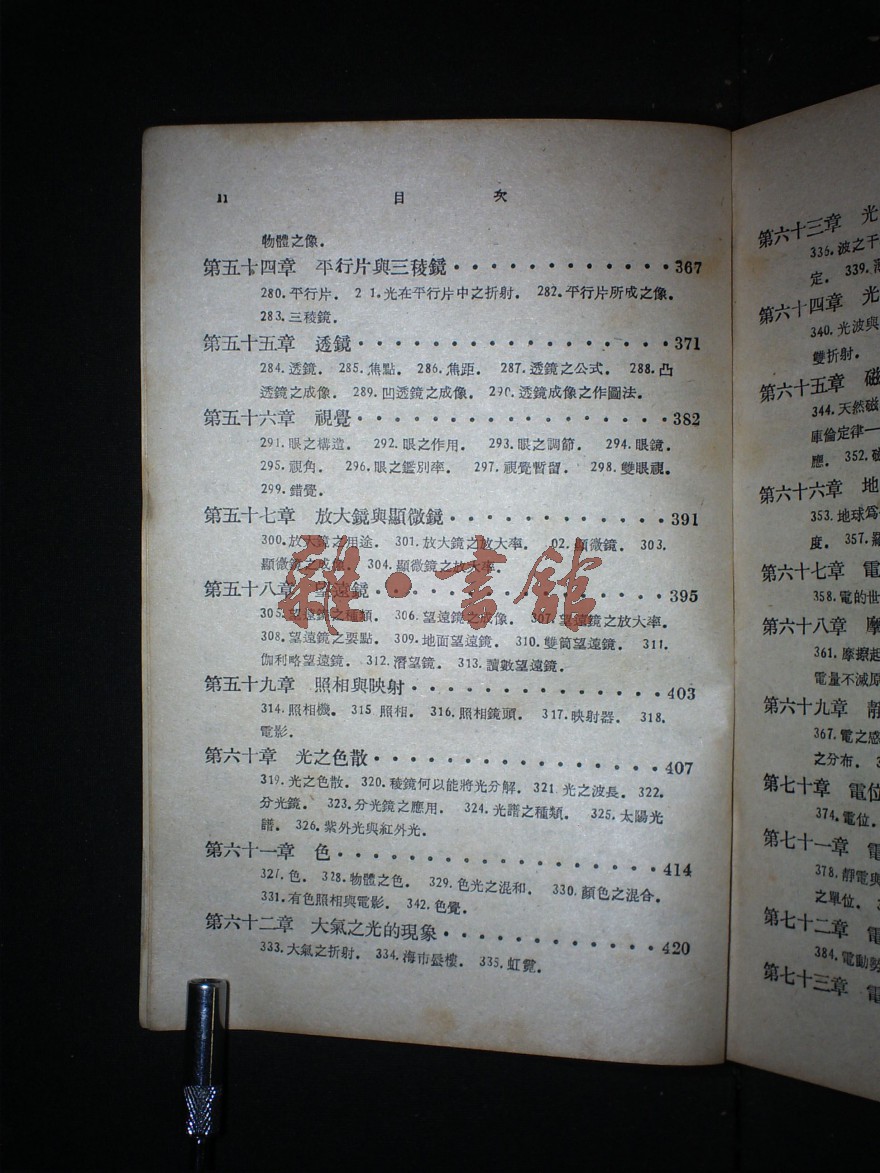 11 目 次
物體之像．
第五十四章 平行片與三稜鏡 · · · · · · · · · · · · · 367
280．平行片． 2 1．光在平行片中之折射． 282．平行片所成之像．
283．三稜鏡．
第五十五章 透鏡 · · · · · · · · · · · · · · · · · · 371
284．透鏡． 285．焦點． 286．焦距． 287．透鏡之公式． 288．凸
透鏡之成像． 289．凹透鏡之成像． 290．透鏡成像之作圖法．
第五十六章 視覺 · · · · · · · · · · · · · · · · · · 382
291．眼之構造． 292．眼之作用． 293．眼之調節． 294．眼鏡．
295．視角． 296．眼之鑑別率． 297．視覺暫留． 298．雙眼視．
299．錯覺．
第五十七章 放大鏡與顯微鏡 · · · · · · · · · · · · · 391
300．放大鏡之用途． 301．放大鏡之放大率． 02．顯微鏡． 303．
顯微鏡之成像． 304．顯微鏡之放大率．
第五十八章 望遠鏡 · · · · · · · · · · · · · · · · · 395
305．望遠鏡之種類． 306．望遠鏡之成像． 307．望遠鏡之放大率．
308．望遠鏡之要點． 309．地面望遠鏡． 310．雙筒望遠鏡． 311．
伽利略望遠鏡． 312．潛望鏡． 313．讀數望遠鏡．
第五十九章 照相與映射 · · · · · · · · · · · · · · · 403
314．照相機． 315 照相． 316．照相鏡頭． 317．映射器． 318．
電影．
第六十章 光之色散 · · · · · · · · · · · · · · · · · 407
319．光之色散． 320．稜鏡何以能將光分解． 321 光之波長． 322．
分光鏡． 323．分光鏡之應用． 324．光譜之種類． 325．太陽光
譜． 326．紫外光與紅外光．
第六十一章 色 · · · · · · · · · · · · · · · · · · · 414
327．色． 328．物體之色． 329．色光之混和． 330．顏色之混合．
331．有色照相與電影． 342．色覺．
第六十二章 大氣之光的現象 · · · · · · · · · · · · · 420
333．大氣之折射． 334．海市蜃樓． 335．虹霓．
雜·書館
第六十三章 光
336．波之干
定． 339．
第六十四章 光
340．光波與
雙折射．
第六十五章 磁
344．天然磁
庫倫定律一
應． 352．磁
第六十六章 地
353．地球爲
度． 357．
第六十七章 電
358．電的世
第六十八章 摩
361．摩擦起
電量不滅原
第六十九章 靜
367．電之感
之分布．
第七十章 電位
374．電位．
第七十一章 電
378．靜電與
之單位．
第七十二章 電
384．電動勢
第七十三章 電